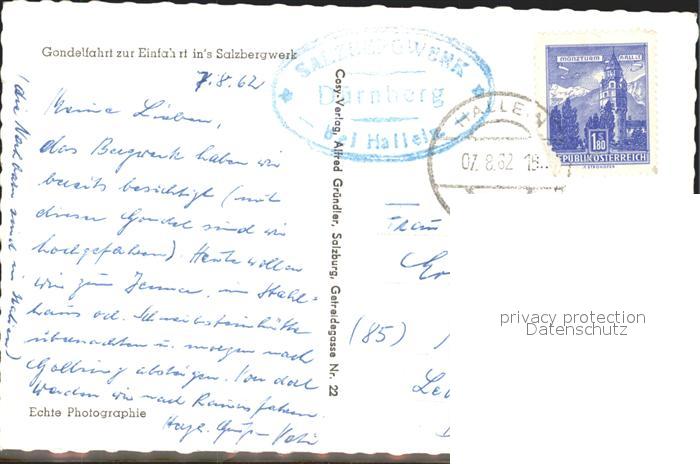 Gondelfahrt zur Einfahrt in's Salzbergwerk
7.8.62
Meine Lieben,
das Bergwerk haben wir
bereits besichtigt (mit
dieser Gondel sind wir
hochgefahren). Heute wollen
wir zum Jenner, im Stahl-
haus od. Schneibsteinhütte
übernachten u. morgen nach
Golling absteigen. Von dort
werden wir nach fahren.
Herzl.
(die Nachbarn sind in Italien)
Echte Photographie
Cosy-Verlag, Alfred Gründler, Salzburg, Getreidegasse Nr. 22
SALZBERGWERK
Dürnberg
bei Hallein
HALLEIN
07. 8. 62 15
MÜNZTURM HALL I.T.
1.80
REPUBLIK ÖSTERREICH
Frau
(85)
privacy protection
Datenschutz